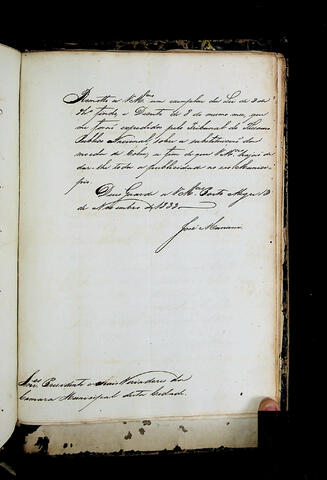 Remetto a V.Mces um exemplar da Lei de 3 de
e Decreto de 8 do mesmo mez, que
foraõ expedidos pelo Tribunal do Thesouro
Publico Nacional, sobre a substituiçaõ da
moeda de Cobre, a fim de que V.Mces hajaõ de
dar-lhe toda a publicidade no seo Municipio
pio.
Deos Guarde a V.Mces Porto Alegre 13
de Novembro de 1833.
José Mariani
Snres Presidente e mais Vereadores da
Camara Municipal desta Cidade.